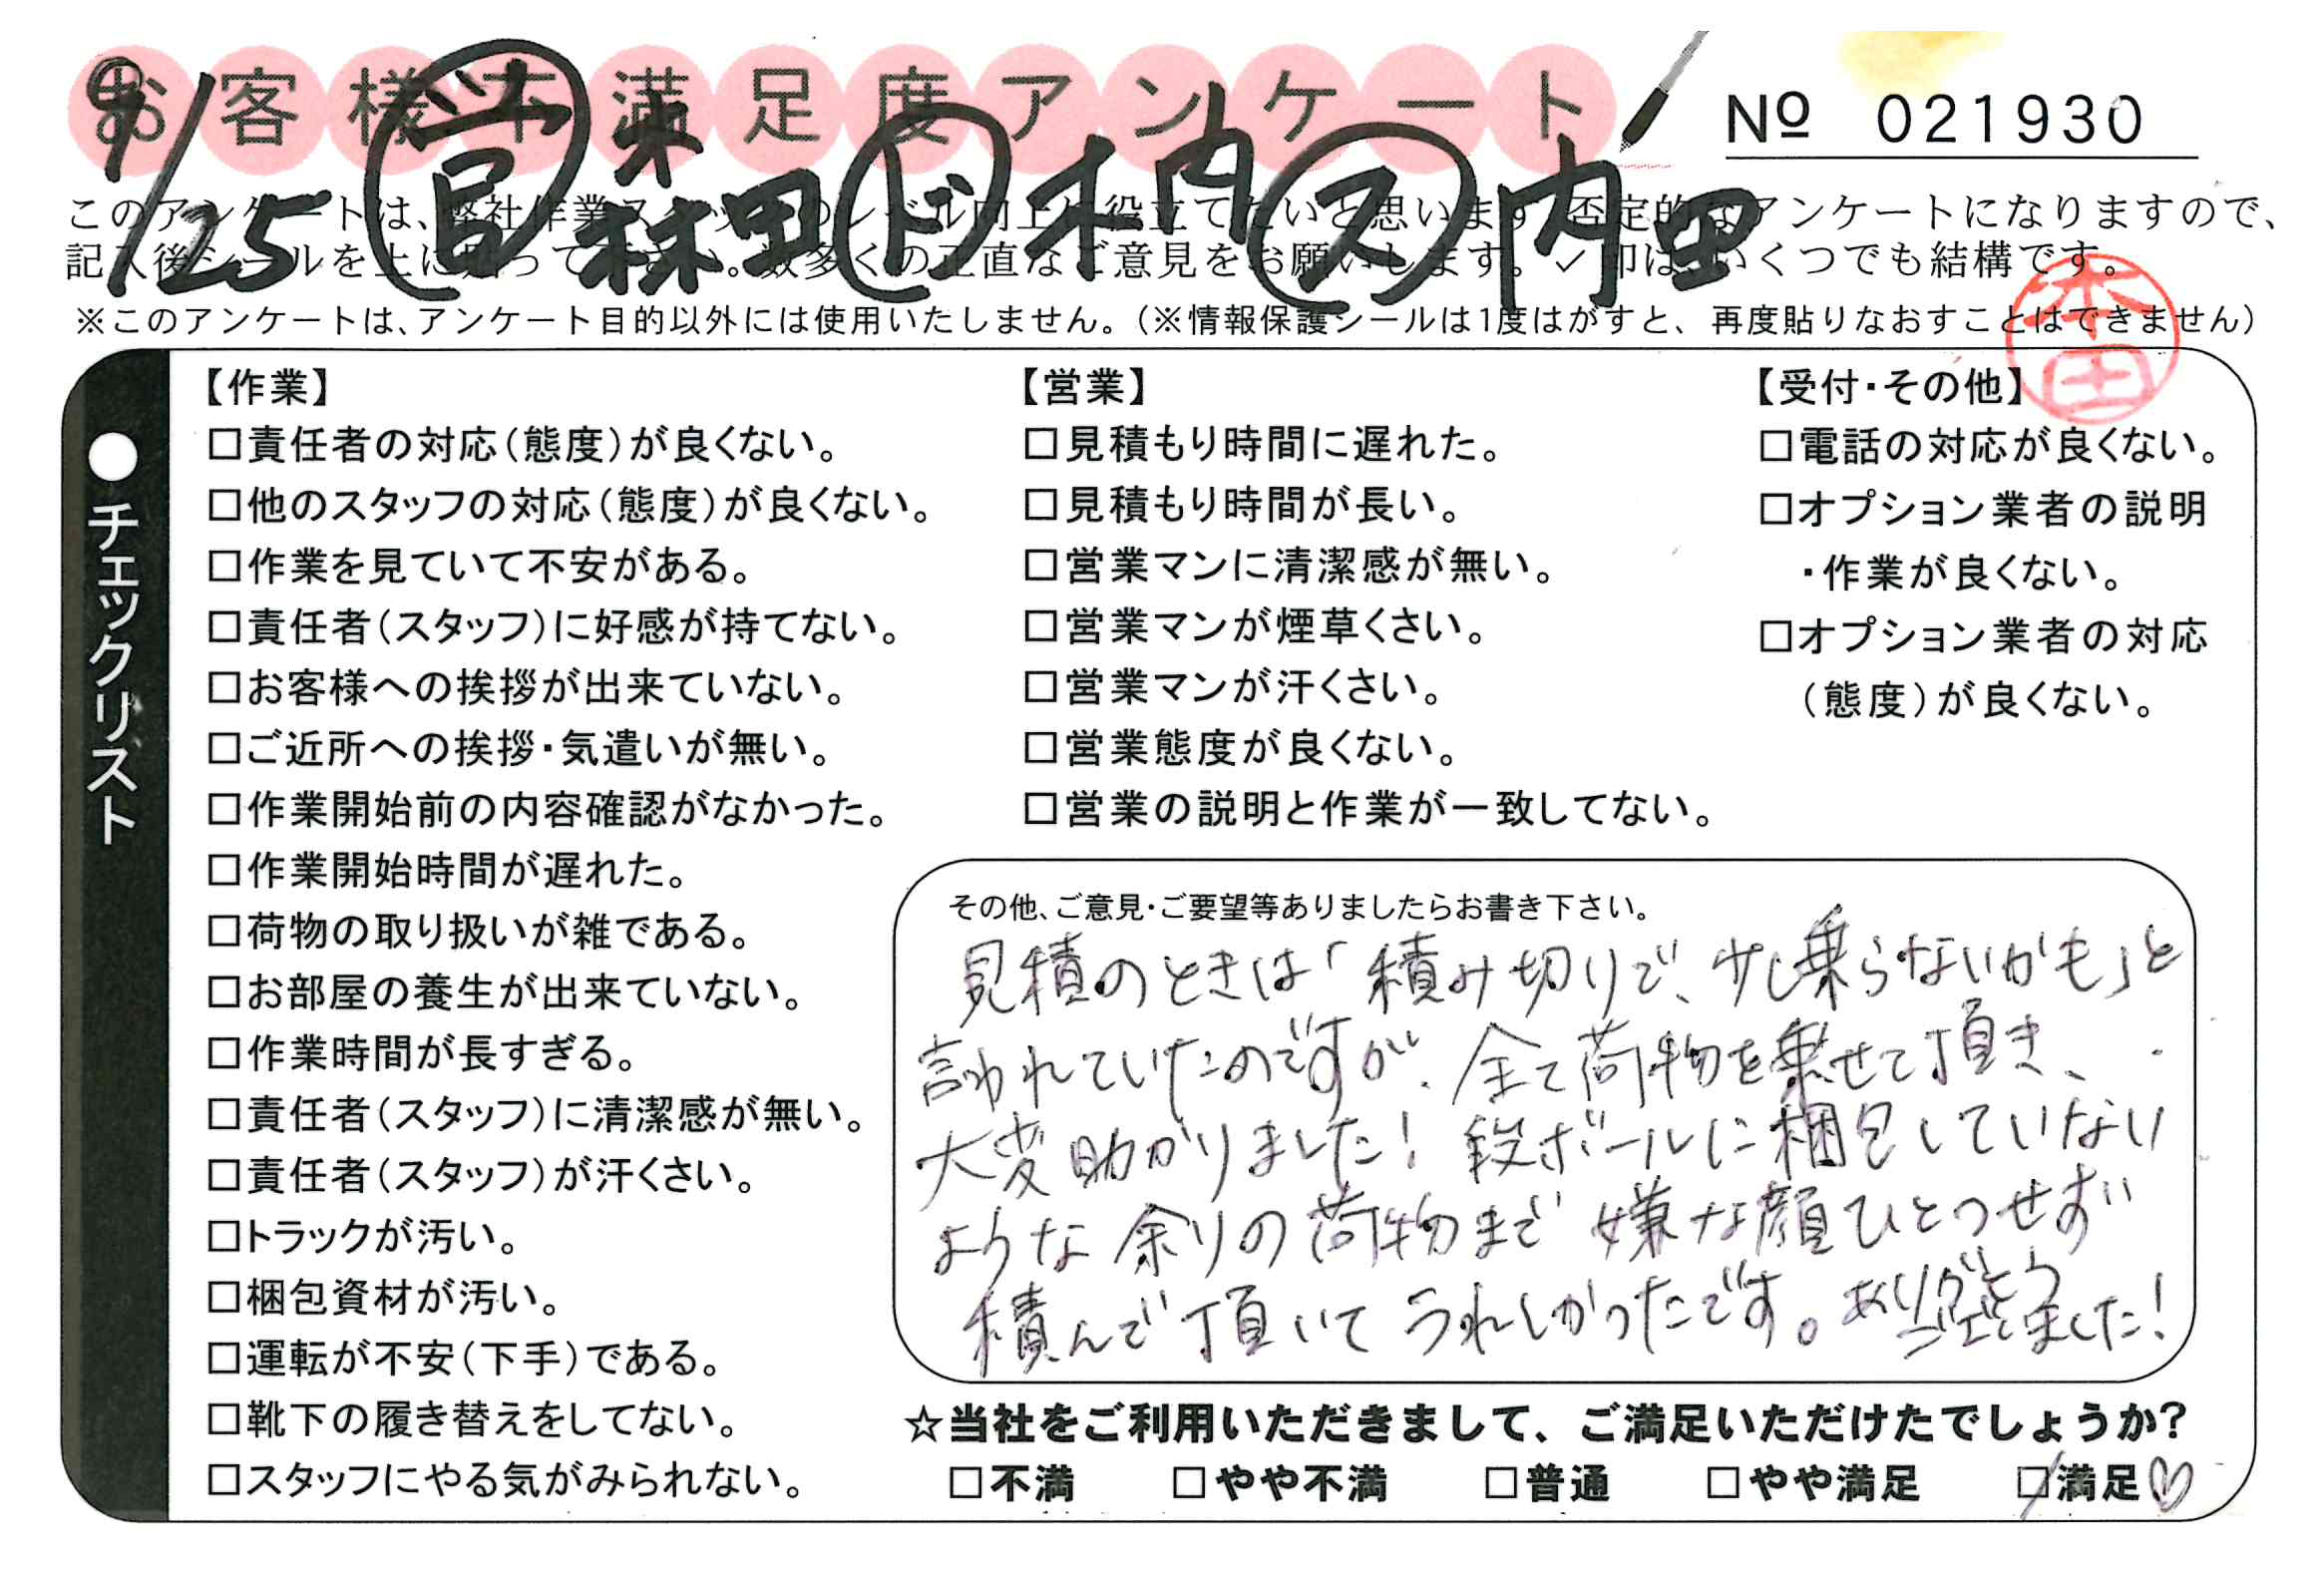 お客様不満足度アンケート
№ 021930
9/25 営 本 林田 ド 木内 ス 内田
このアンケートは、弊社作業スタッフのレベル向上に役立てたいと思います。否定的なアンケートになりますので、
記入後シールを上に貼って下さい。数多くの正直なご意見をお願いします。✓印は、いくつでも結構です。
※このアンケートは、アンケート目的以外には使用いたしません。（※情報保護シールは1度はがすと、再度貼りなおすことはできません）
本田
●チェックリスト
【作業】
□責任者の対応（態度）が良くない。
□他のスタッフの対応（態度）が良くない。
□作業を見ていて不安がある。
□責任者（スタッフ）に好感が持てない。
□お客様への挨拶が出来ていない。
□ご近所への挨拶・気遣いが無い。
□作業開始前の内容確認がなかった。
□作業開始時間が遅れた。
□荷物の取り扱いが雑である。
□お部屋の養生が出来ていない。
□作業時間が長すぎる。
□責任者（スタッフ）に清潔感が無い。
□責任者（スタッフ）が汗くさい。
□トラックが汚い。
□梱包資材が汚い。
□運転が不安（下手）である。
□靴下の履き替えをしてない。
□スタッフにやる気がみられない。
【営業】
□見積もり時間に遅れた。
□見積もり時間が長い。
□営業マンに清潔感が無い。
□営業マンが煙草くさい。
□営業マンが汗くさい。
□営業態度が良くない。
□営業の説明と作業が一致してない。
【受付・その他】
□電話の対応が良くない。
□オプション業者の説明
・作業が良くない。
□オプション業者の対応
（態度）が良くない。
その他、ご意見・ご要望等ありましたらお書き下さい。
見積のときは「積み切りで、少し乗らないかも」と
言われていたのですが、全て荷物を乗せて頂き、
大変助かりました！段ボールに梱包していない
ような余りの荷物まで嫌な顔ひとつせず
積んで頂いてうれしかったです。ありがとう
ございました！
☆当社をご利用いただきまして、ご満足いただけたでしょうか？
□不満 □やや不満 □普通 □やや満足 ☑満足♡